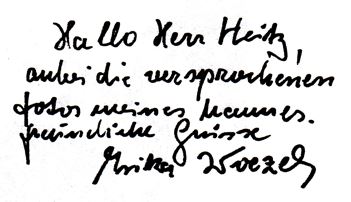 Hallo Herr Heitz,
anbei die versprochenen
Fotos meines Mannes.
freundliche Grüsse
Erika